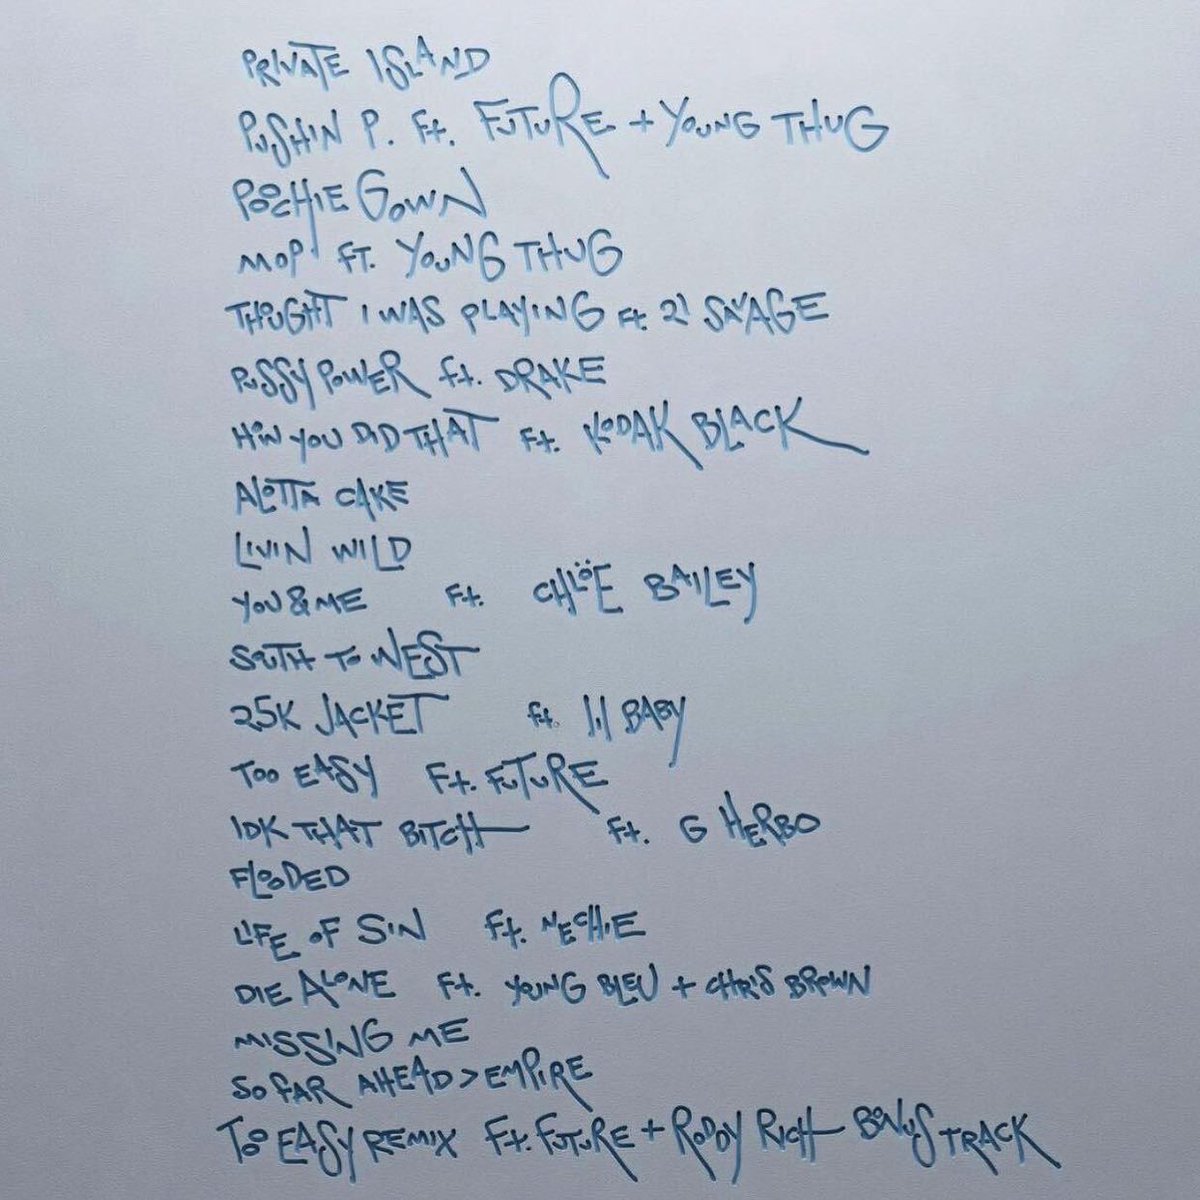 PRIVATE ISLAND
PUSHIN P. Ft. FUTURE + YOUNG THUG
POOCHIE GOWN
MOP FT. YOUNG THUG
THOUGHT I WAS PLAYING Ft. 21 SAVAGE
PUSSY POWER ft. DRAKE
HOW YOU DID THAT Ft. KODAK BLACK
ALOTTA CAKE
LIVIN WILD
YOU & ME Ft. CHLÖE BAILEY
SOUTH TO WEST
25K JACKET ft. lil BABY
TOO EASY Ft. FUTURE
IDK THAT BITCH Ft. G HERBO
FLOODED
LIFE OF SIN Ft. NECHIE
DIE ALONE Ft. YOUNG BLEU + CHRIS BROWN
MISSING ME
SO FAR AHEAD > EMPIRE
TOO EASY REMIX Ft. FUTURE + RODDY RICH BONUS TRACK